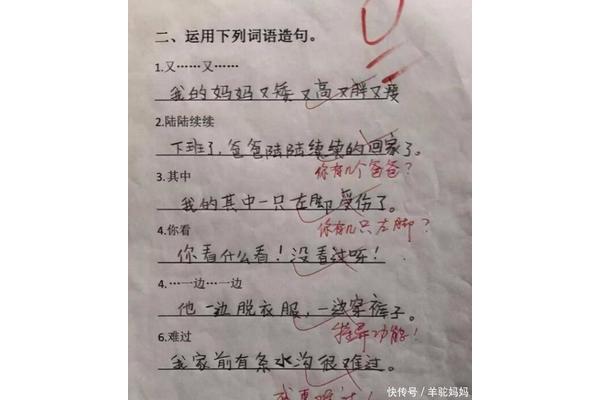 二、运用下列词语造句。
1.又……又……
我的妈妈又矮又高又胖又瘦
2.陆陆续续
下班了，爸爸陆陆续续的回家了。
你有几个爸爸？
3.其中
我的其中一只左脚受伤了。
你有几只左脚？
4.你看
你看什么看！没看过呀！
4.…一边…一边
他一边脱衣服，一边穿裤子。
特异功能！
6.难过
我家前有条水沟很难过。
我更难过！
快传号 / 羊驼妈妈